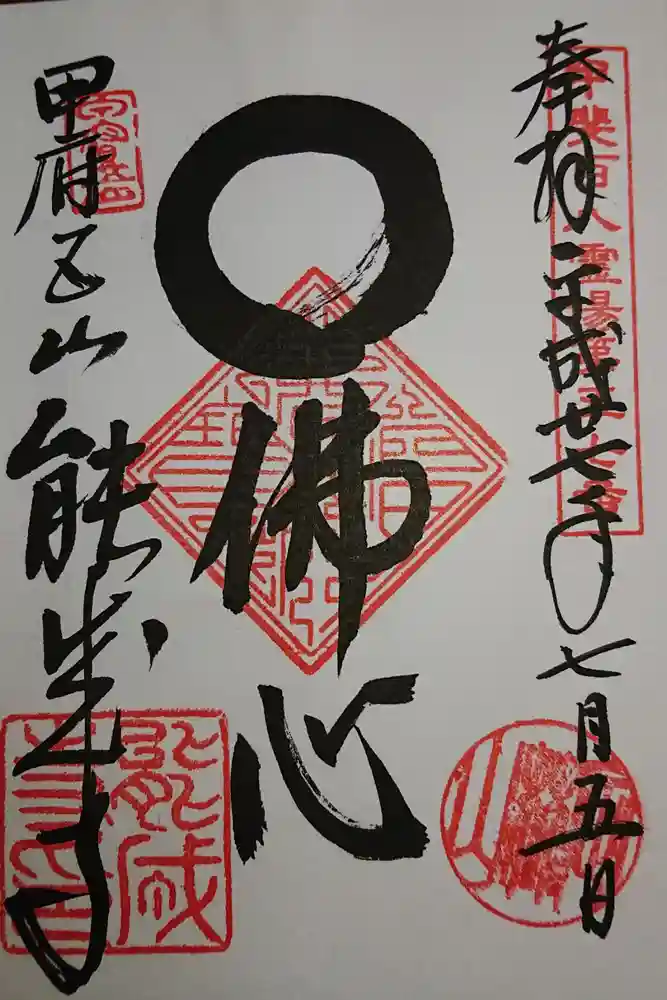 奉拝 平成廿七年七月五日
甲斐百八霊場第五十七番
佛心
甲府五山 能成寺